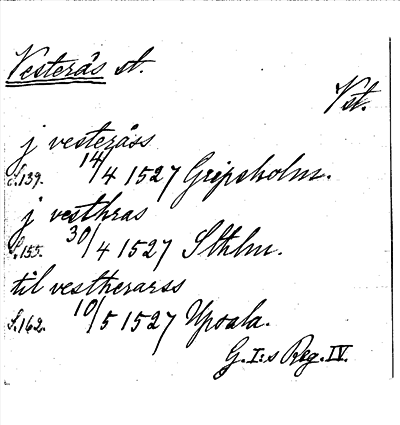 Vesterås st.
Vst.
j vesteråss
s. 139. 14/4 1527 Gripsholm.
j vesthras
S. 155. 30/4 1527 Sthlm.
til vestherarss
S. 162. 10/5 1527 Upsala.
G. I:s Reg. IV.